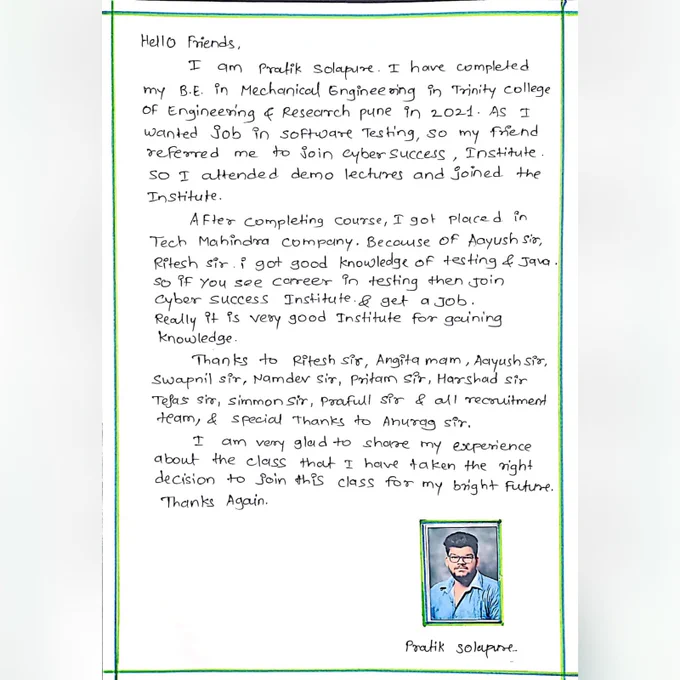 Hello Friends,
I am Pratik Solapure. I have completed
my B.E. in Mechanical Engineering in Trinity college
OF Engineering & Research pune in 2021. As I
wanted Job in software Testing, so my friend
referred me to join cyber success, Institute.
so I attended demo lectures and joined the
Institute.
After completing course, I got placed in
Tech Mahindra company. Because of Aayush sir,
Ritesh sir. i got good knowledge of testing & Java.
so if you see career in testing then join
cyber success Institute. & get a Job.
Really it is very good Institute for gaining
knowledge.
Thanks to Ritesh sir, Angita mam, Aayush sir,
Swapnil sir, Namdev sir, Pritam sir, Harshad sir
Tejas sir, Simmon sir, Prafull sir & all recruitment
team, & special Thanks to Anurag sir.
I am very glad to share my experience
about the class that I have taken the right
decision to join this class for my bright Future.
Thanks Again.
Pratik Solapure.